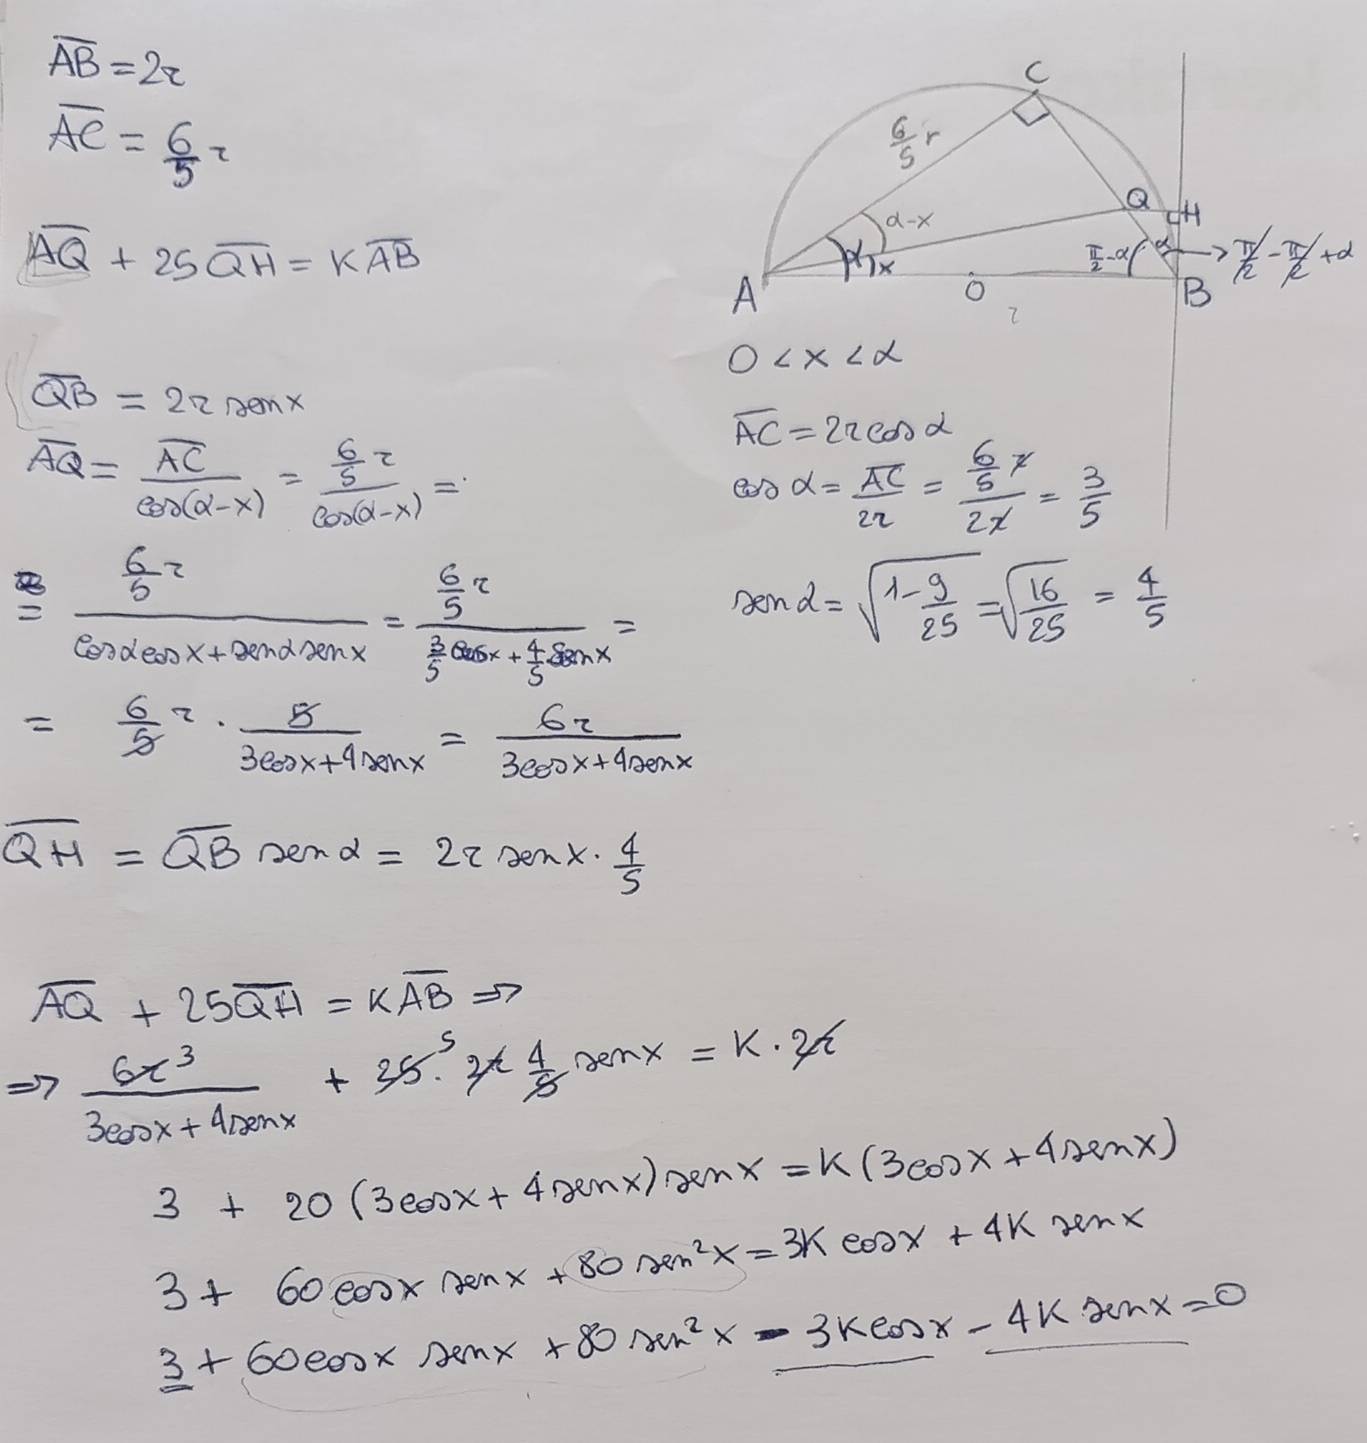 AB = 2r
AC = 6/5 r
AQ + 25 QH = K AB
QB = 2r sen x
AQ = AC / cos(α-x) = 6/5 r / cos(α-x) =
= 6/5 r / cosα cos x + senα sen x = 6/5 r / 3/5 cos x + 4/5 sen x =
= 6/5 r · 5 / 3cos x + 4 sen x = 6r / 3cos x + 4 sen x
QH = QB sen α = 2r sen x · 4/5
AQ + 25 QH = K AB ⇒
⇒ 6r 3 / 3cos x + 4 sen x + 25 5 · 2r 4/5 sen x = K · 2r
3 + 20 (3cos x + 4 sen x) sen x = K (3cos x + 4 sen x)
3 + 60 cos x sen x + 80 sen² x = 3K cos x + 4K sen x
3 + 60 cos x sen x + 80 sen² x - 3K cos x - 4K sen x = 0
C
6/5 r
α-x
Q
H
α
x
π/2 - α
α
→ π/2 - π/2 + α
A
O
B
r
0 < x < α
AC = 2r cos α
cos α = AC / 2r = 6/5 r / 2r = 3/5
sen α = √1 - 9/25 = √16/25 = 4/5